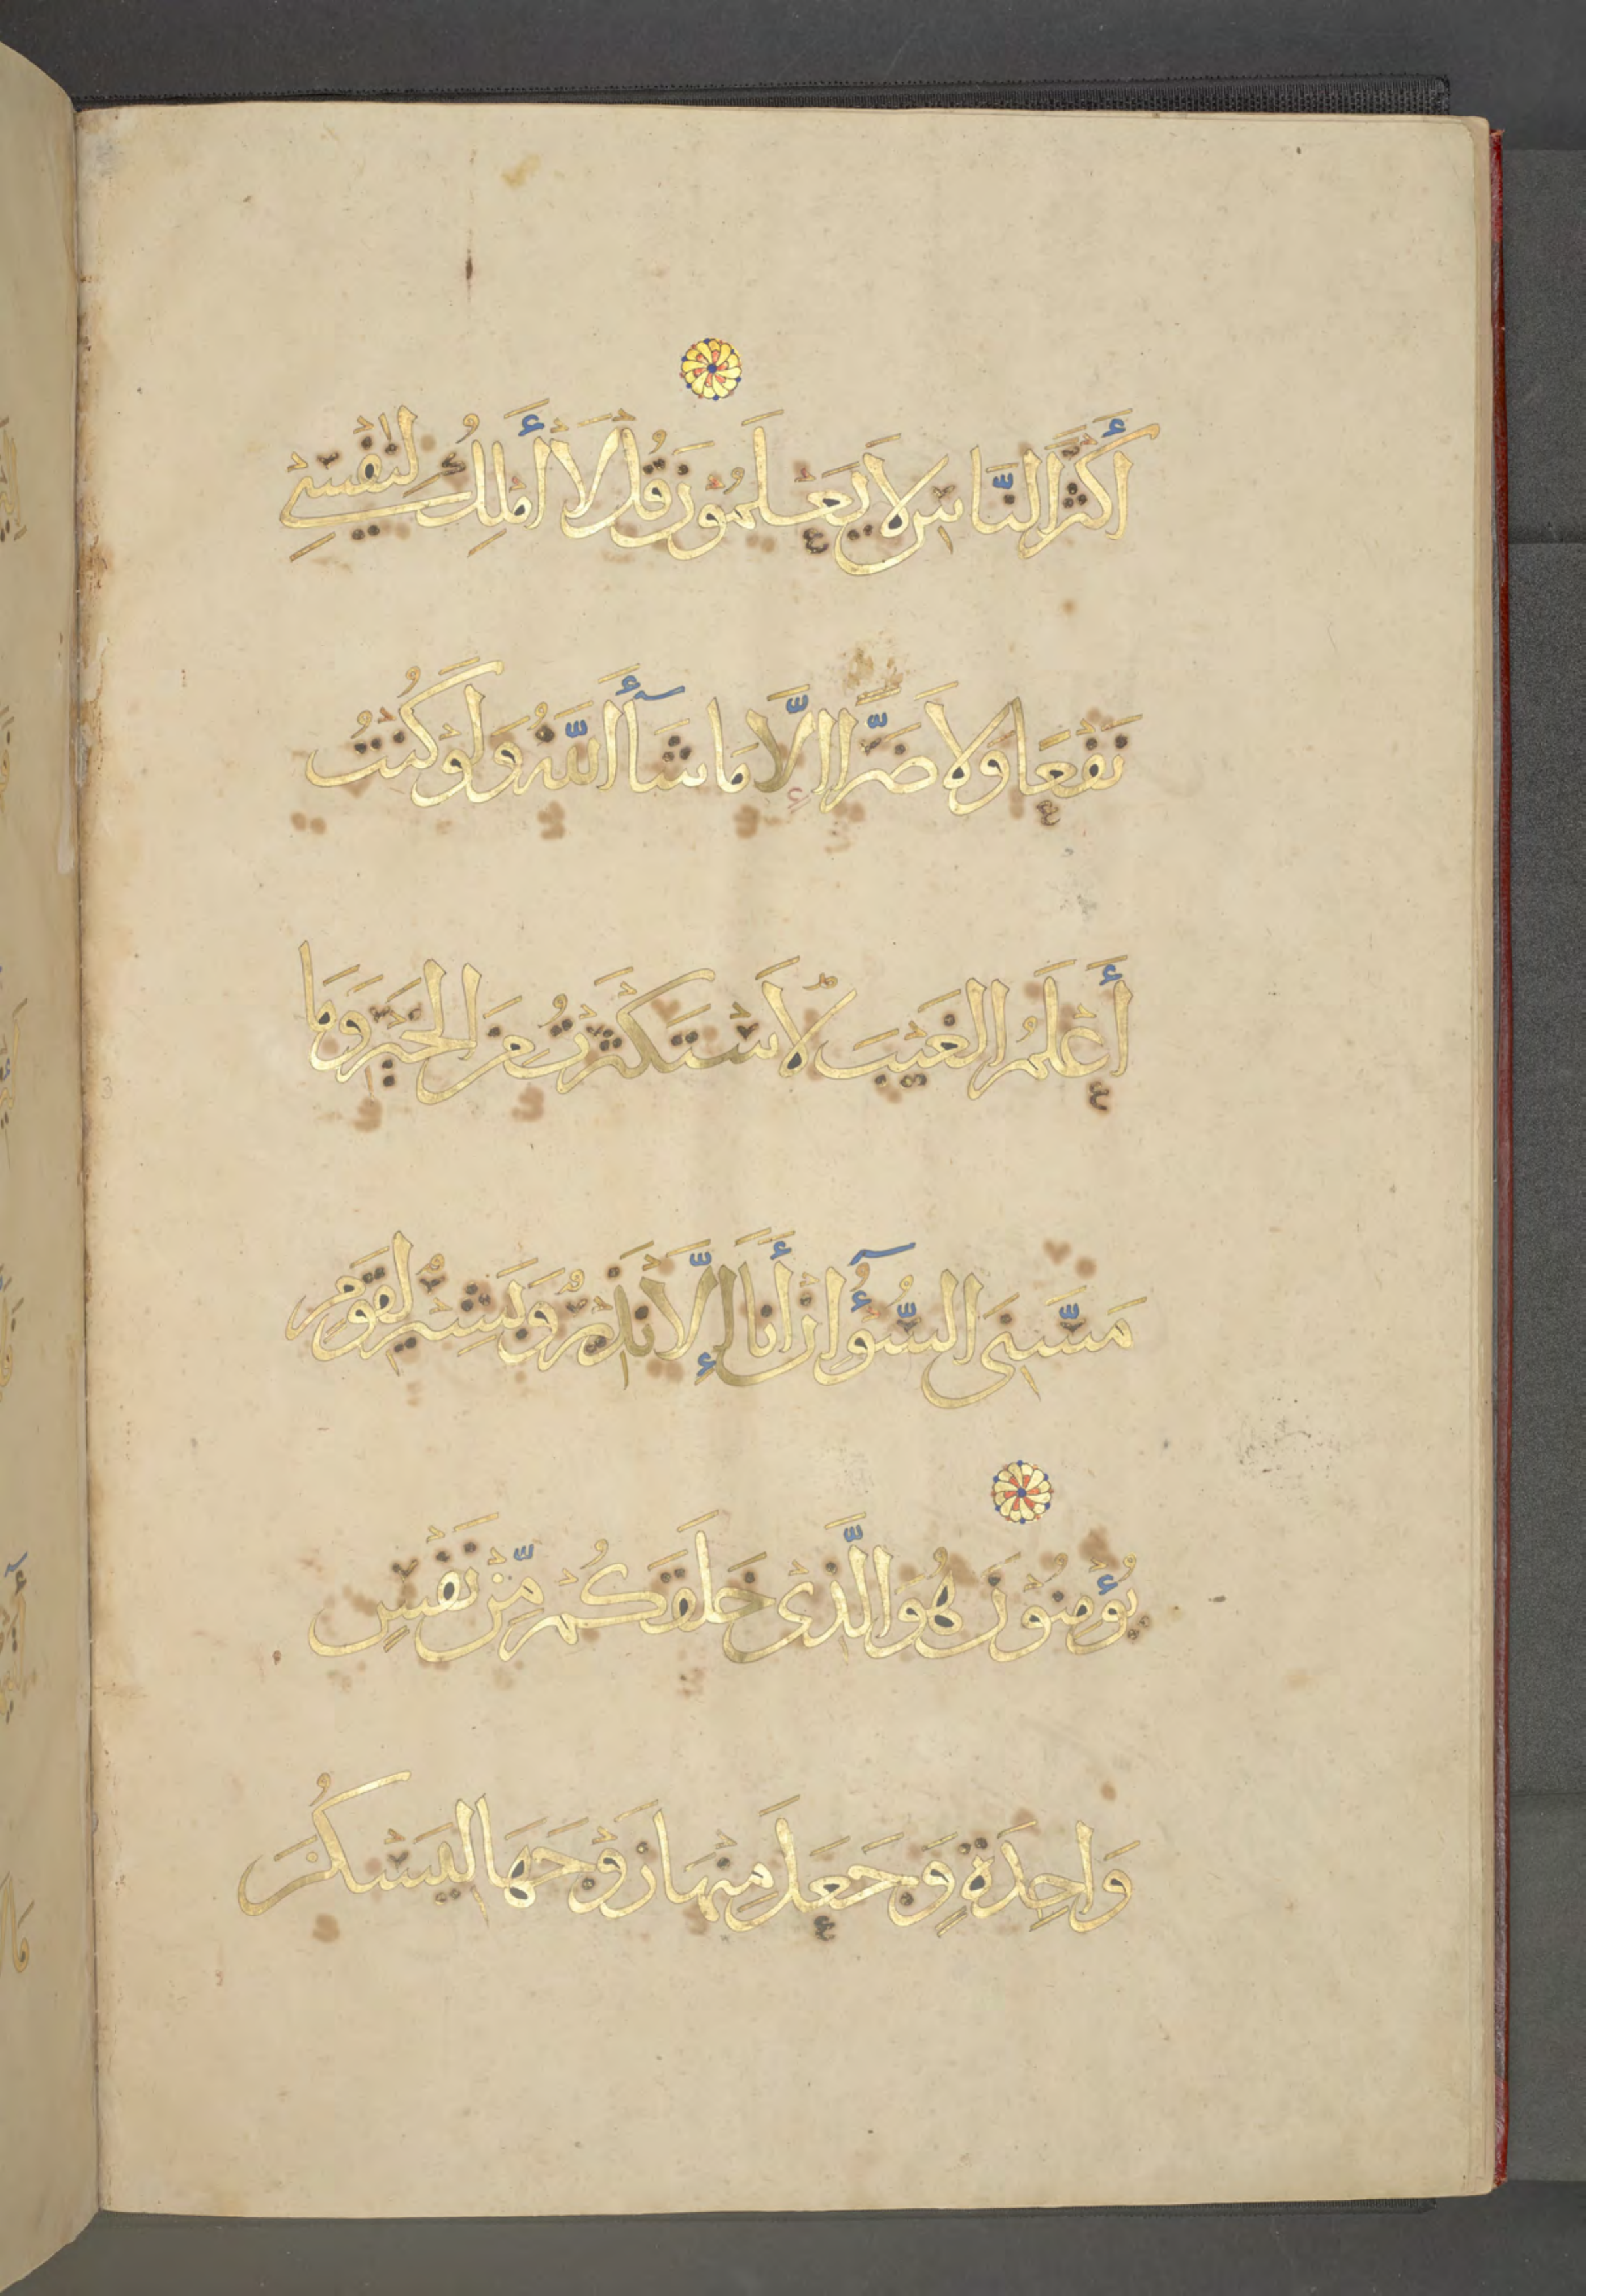 أَكْثَرَ النَّاسِ لَا يَعْلَمُونَ قُلْ لَا أَمْلِكُ لِنَفْسِي
نَفْعًا وَلَا ضَرًّا إِلَّا مَا شَآءَ اللَّهُ وَلَوْ كُنْتُ
أَعْلَمُ الْغَيْبَ لَاسْتَكْثَرْتُ مِنَ الْخَيْرِ وَمَا
مَسَّنِيَ السُّوٓءُ إِنْ أَنَا إِلَّا نَذِيرٌ وَبَشِيرٌ لِقَوْمٍ
يُؤْمِنُونَ هُوَ الَّذِي خَلَقَكُمْ مِّنْ نَفْسٍ
وَاحِدَةٍ وَجَعَلَ مِنْهَا زَوْجَهَا لِيَسْكُنَ